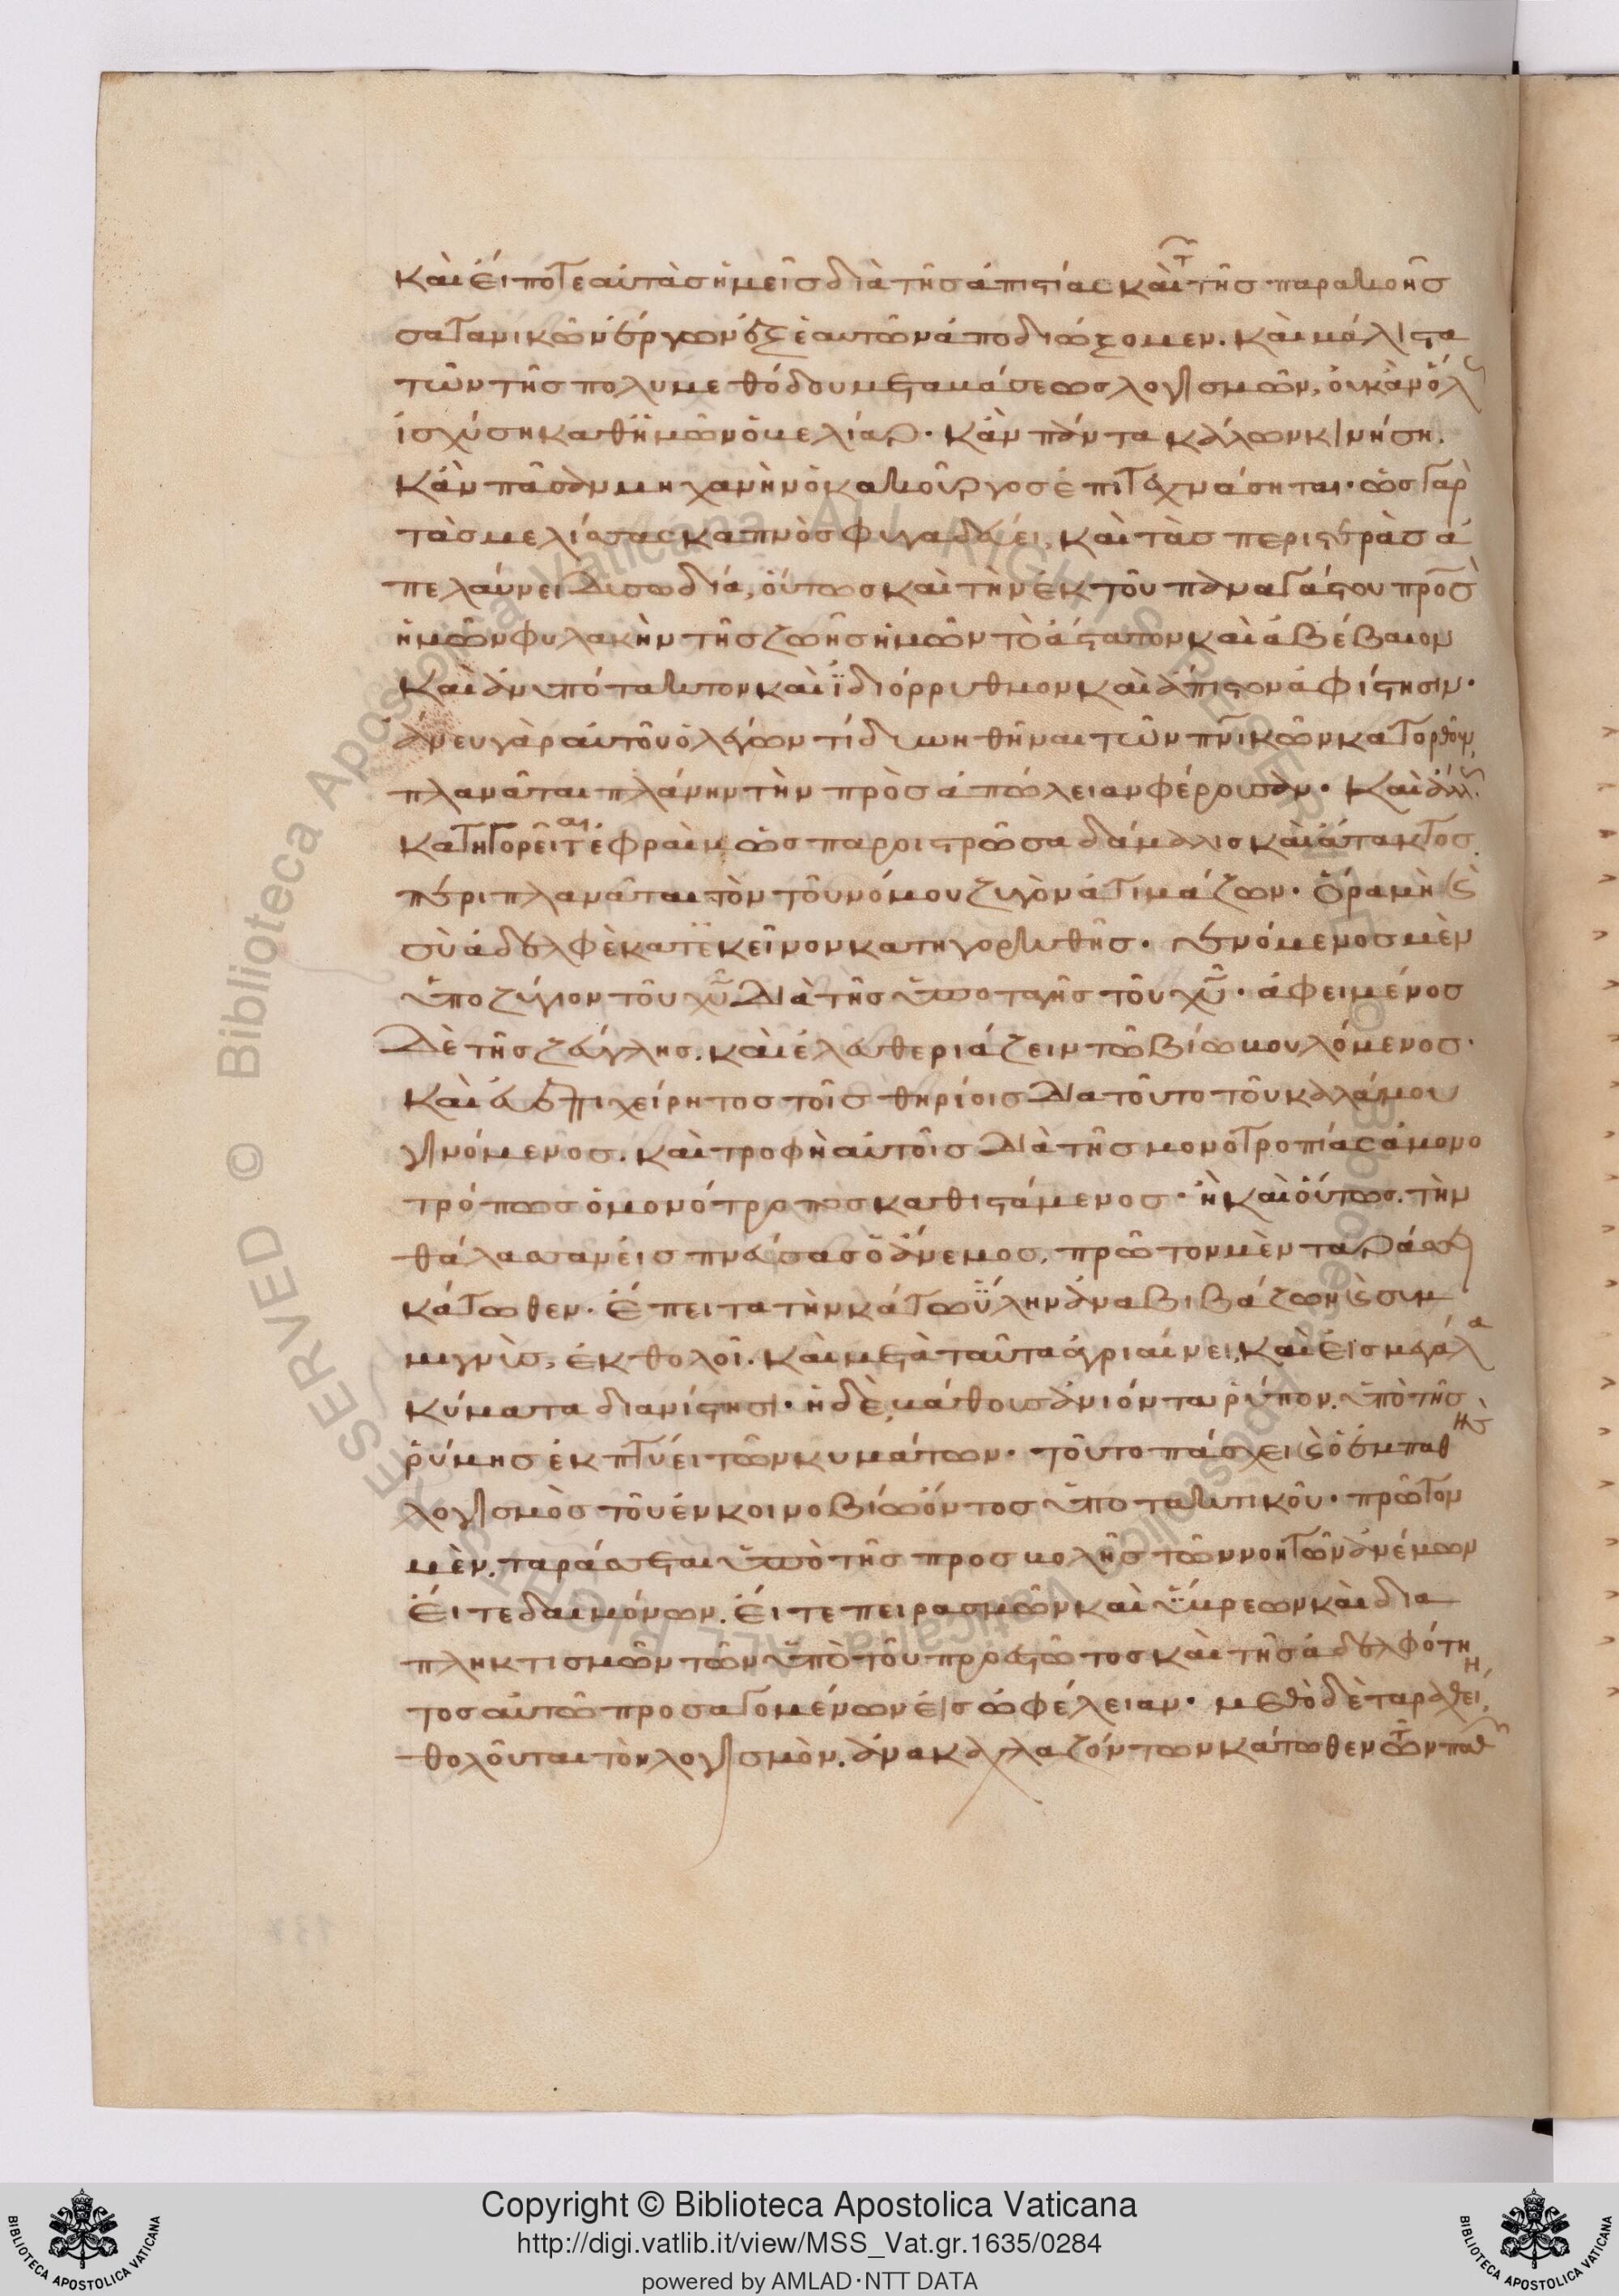 καὶ εἴ ποτε αὐτὰς ἡμεῖς διὰ τῆς ἀπιστίας καὶ τῆς παρακοῆς
σατανικῶν ἔργων ἐξ ἑαυτῶν ἀποδιώξομεν. καὶ μάλιστα
τῶν τῆς πολυμεθόδου μεταμάσεως λογισμῶν, οὐκ ἂν ὅλ
ἰσχύσῃ καθ' ἡμῶν ὁ βελίαρ. κἂν πάντα κάλων κινήσῃ.
κἂν πᾶσαν μηχανὴν ὁ κακοῦργος ἐπιτεχνάσηται. ὡς γὰρ
τὰς μελίσσας καπνὸς φυγαδεύει, καὶ τὰς περιστερὰς ἀ
πελαύνει δυσωδία, οὕτως καὶ τὴν ἐκ τοῦ παναγάστου πρὸς
ἡμῶν φυλακὴν τῆς ζωῆς ἡμῶν τὸ ἄστατον καὶ ἀβέβαιον
καὶ ἀνυπότακτον καὶ ἰδιόρρυθμον καὶ ἄπιστον ἀφίστησιν.
ἄνευ γὰρ αὐτοῦ ὁ λέγων τί δυνηθῆναι τῶν πνικῶν κατορθῶσ
πλανᾶται πλάνην τὴν πρὸς ἀπώλειαν φέρουσαν. καὶ ἀλλ
κατηγορεῖται ἐφραὶμ ὡς παροιστρῶσα δάμαλις καὶ ἀτάκτος
περιπλανᾶται τὸν τοῦ νόμου ζυγὸν ἀτιμάζων. ὅρα μὴ καὶ
σὺ ἀδελφὲ κατ' ἐκεῖνον κατηγορηθῇς. γενόμενος μὲν
ὑποζύγιον τοῦ χῦ διὰ τῆς ὑποταγῆς τοῦ χῦ. ἀφειμένος
δὲ τῆς ζεύγλης. καὶ ἐλευθεριάζειν τῷ βίῳ βουλόμενος.
καὶ εὐεπιχείρητος τοῖς θηρίοις διὰ τοῦτο τοῦ καλάμου
γινόμενος. καὶ τροφὴ αὐτοῖς διὰ τῆς μονοτροπίας ἀμονο
τρόπως ὁ μονότροπος καθιστάμενος. ἢ καὶ οὕτως. τὴν
θάλασσαν εἰσπνεύσας ὁ ἄνεμος, πρῶτον μὲν ταράσσει
κάτωθεν. ἔπειτα τὴν κάτω ὕλην ἀναβιβάζων καὶ συμ
μιγνὺς, ἐκθολοῖ. καὶ μετὰ ταῦτα ἀγριαίνει, καὶ εἰς μεγάλα
κύματα διανίστησι. ἡ δὲ μαθοῦσα ἀνιόντα ῥύπον. ὑπὸ τῆς
ῥύμης ἐκπτύει τῶν κυμάτων. τοῦτο πάσχει καὶ ὁ ἐμπαθὴς
λογισμὸς τοῦ ἐν κοινοβίῳ ὄντος ὑποτακτικοῦ. πρῶτον
μὲν. ταράσσεται ὑπὸ τῆς προσβολῆς τῶν νοητῶν ἀνέμων
εἴτε δαιμόνων. εἴτε πειρασμῶν καὶ ὕβρεων καὶ δια
πληκτισμῶν τῶν ὑπὸ τοῦ προεστῶτος καὶ τῆς ἀδελφότη
τος αὐτῷ προσαγομένων εἰς ὠφέλειαν. μεθὸ δὲ ταραχθείη,
θολοῦται τὸν λογισμὸν. ἀνακαχλαζόντων κάτωθεν τῶν παθ
Copyright © Biblioteca Apostolica Vaticana
http://digi.vatlib.it/view/MSS_Vat.gr.1635/0284
powered by AMLAD·NTT DATA